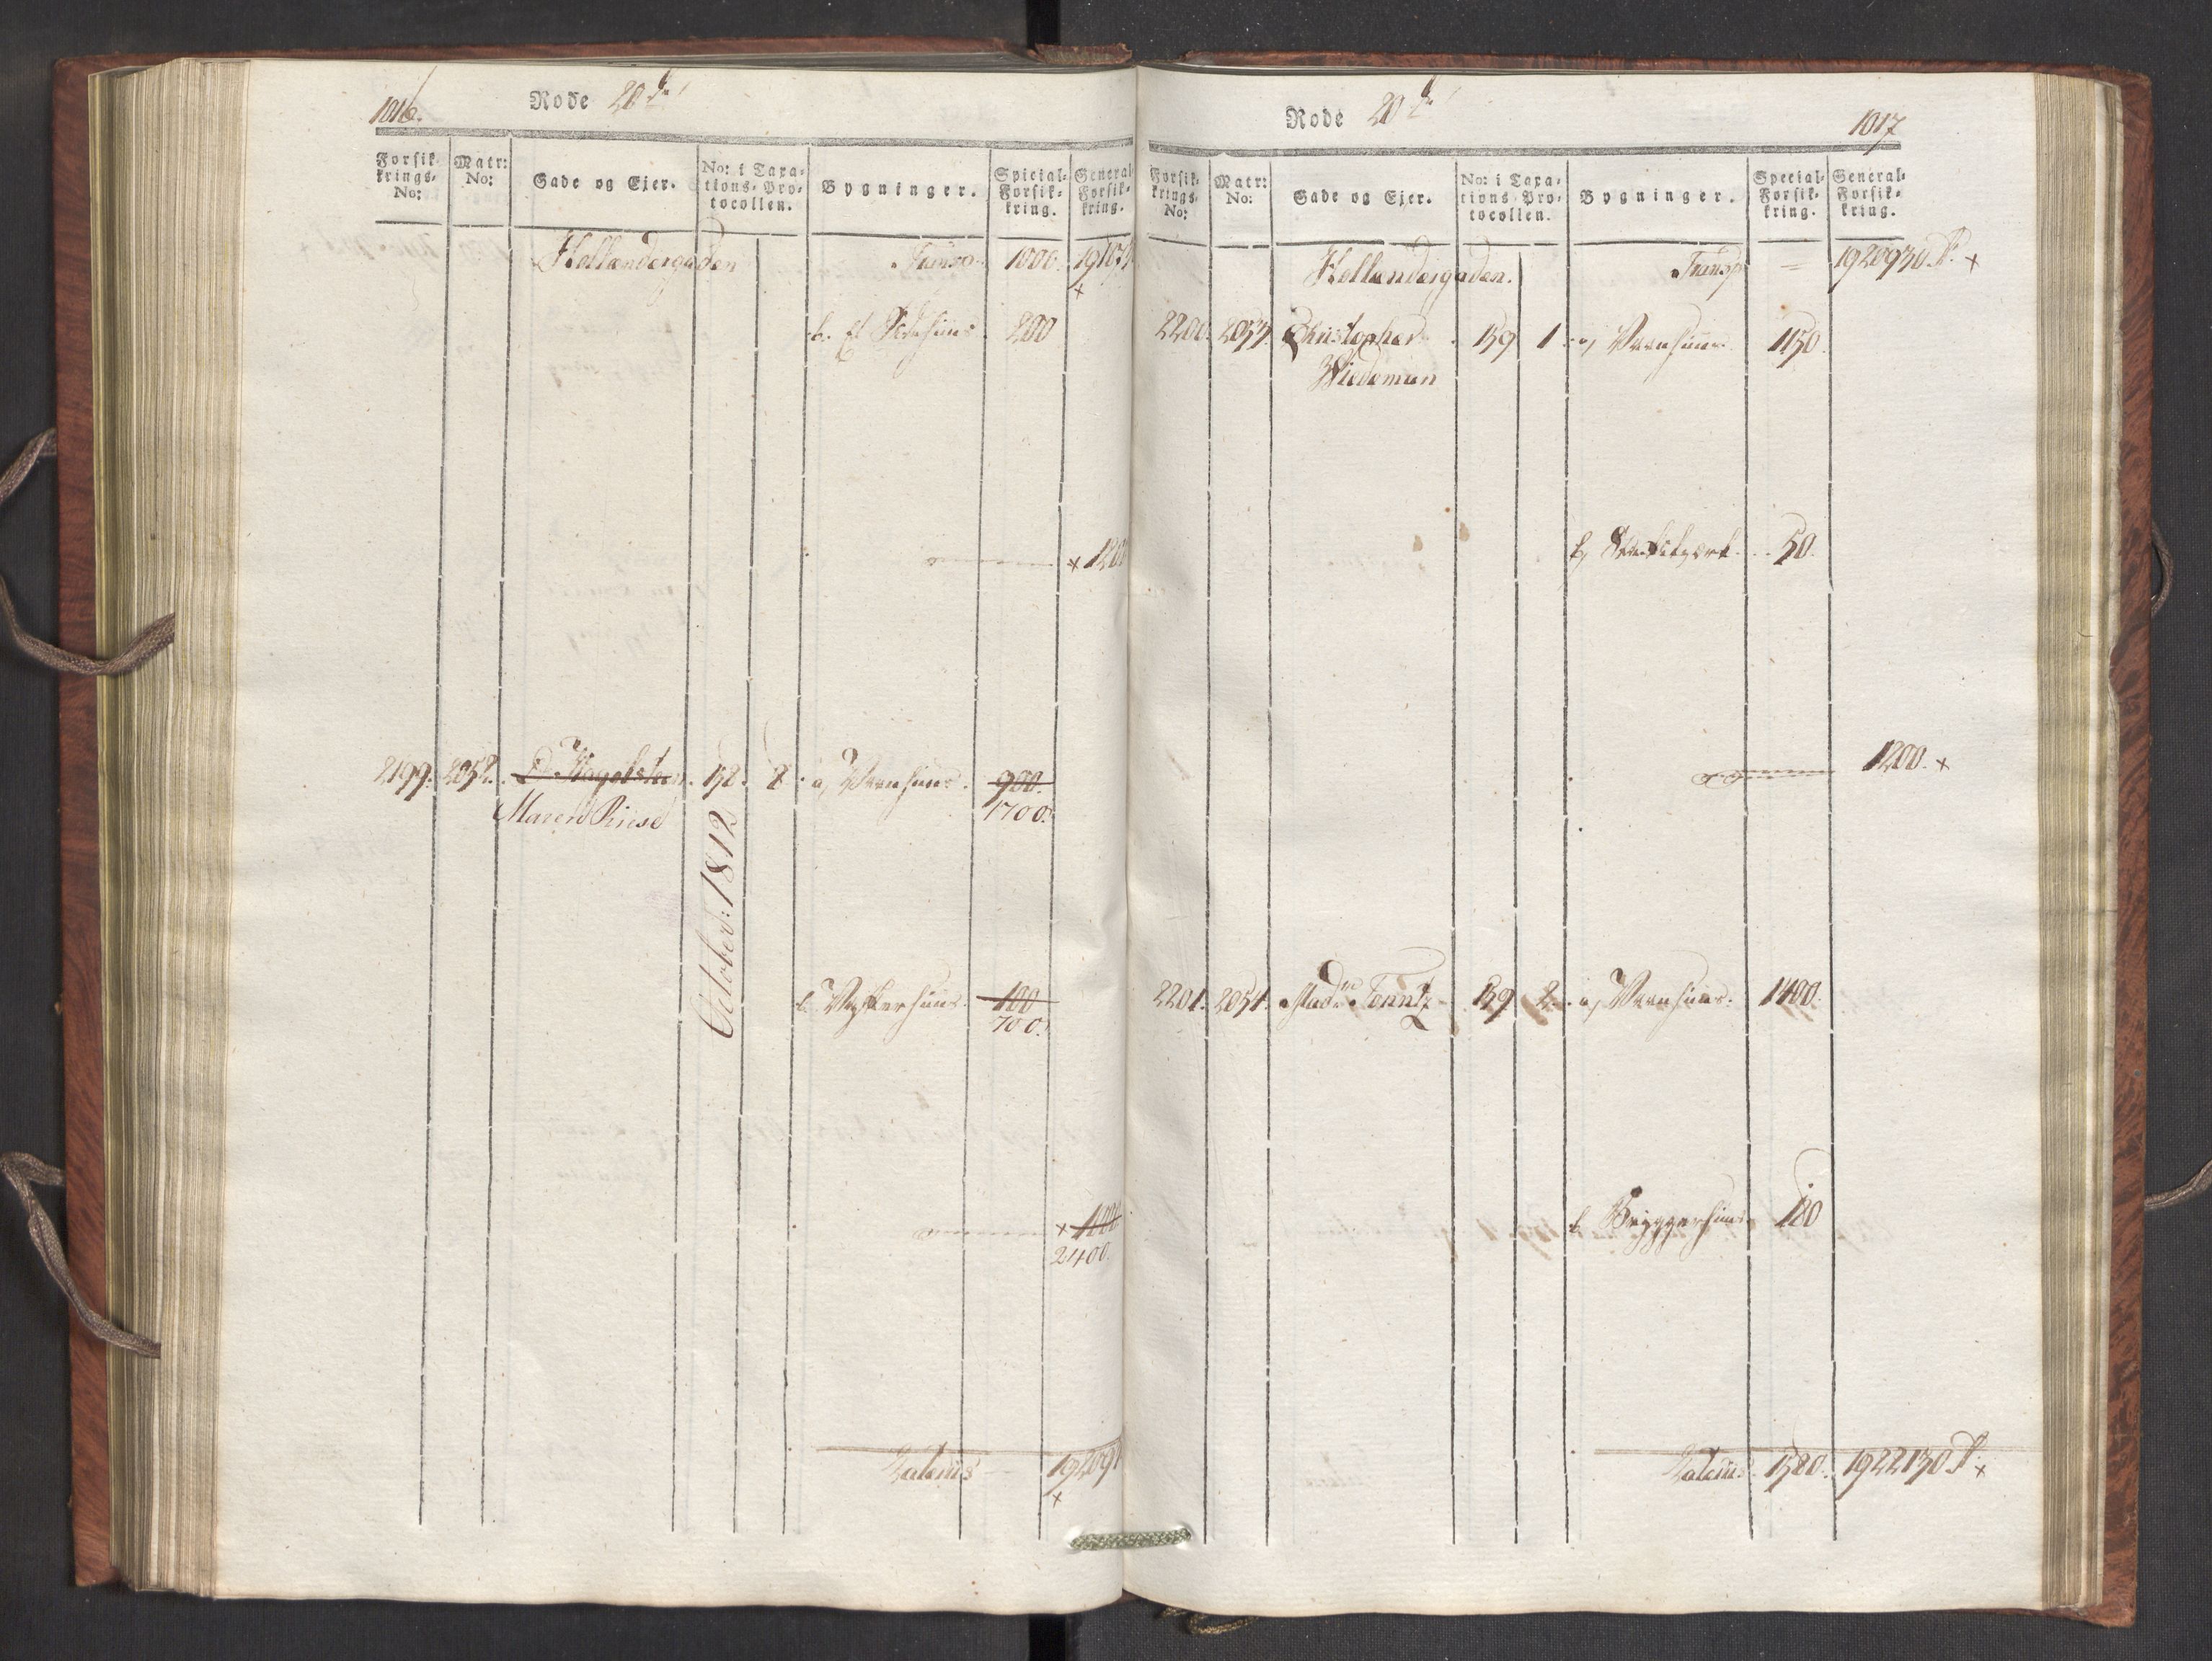 1016.
Rode 20de
Forsik-
krings-
No:
Matr:
No:
Gade og Eier.
No: i Taxa-
tions-Pro-
tocollen.
Bygninger.
Spicial-
Forsik-
kring.
General-
Forsik-
kring.
Hollændergaden Transp. 1000. 19107
+
b. Et 200
+ 1200
2199. 2052. 158. 2. a, Vaanhuus. 900.
Maren Riese 1700.
October: 1812
b. 100
700.
+ 1000
2400.
Lateris 192091
+
Rode 20de
1017
Forsik-
krings-
No:
Matr:
No:
Gade og Eier.
No: i Taxa-
tions-Pro-
tocollen.
Bygninger.
Special-
Forsik-
kring.
General-
Forsik-
kring.
Hollændergaden. Transp. = 1920930 +
2200. 2053. Christopher 159 1. a, Vaanhuus 1150.
Wiedeman
b, 50.
1200. +
2201. 2054. 159 2. a, Vaanhuus. 1400.
b. Bryggerhuus 180
Lateris. 1580. 1922130 +